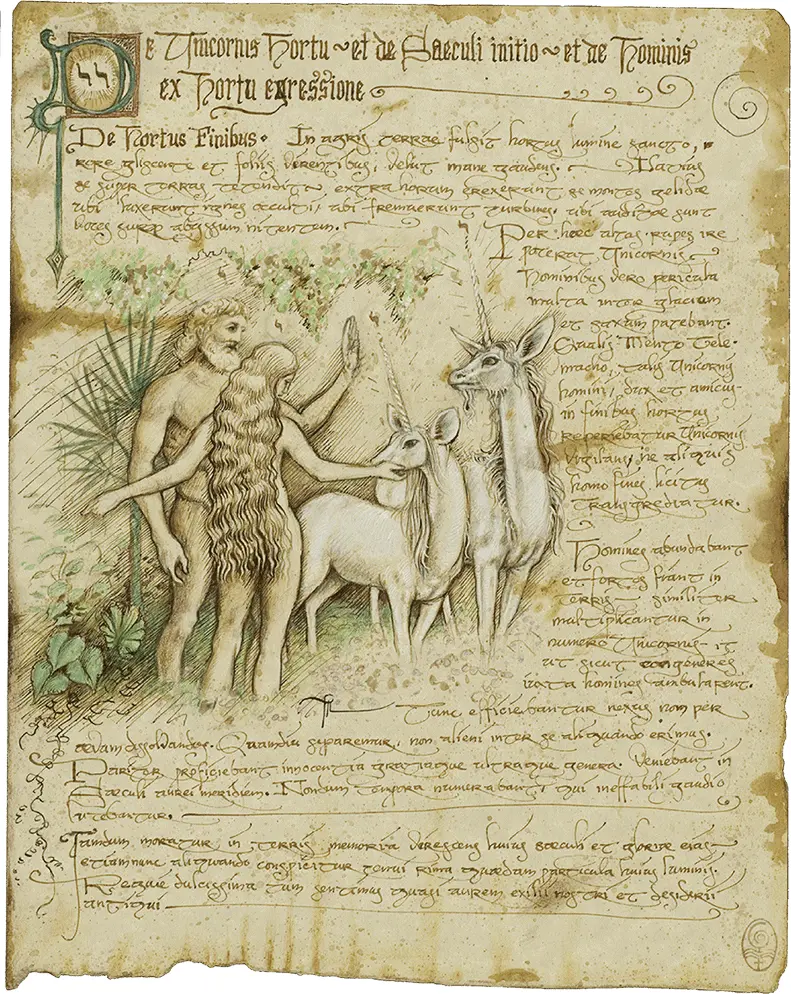 De Unicornis Hortu ~ et de Saeculi initio ~ et de Hominis
ex Hortu egressione
De Hortus Finibus. In agris terrae fulsit hortus lumine sancto,
rore gliscente et foliis virentibus, velut mane gaudens. Latius
se super terras tetendit, extra horum erexerant se montes gelidae
ubi luxerunt ignes occulti, ubi fremuerunt turbines, ubi auditae sunt
voces super abyssum nitentem.
Per haec altas rupes ire
poterat Unicornis
hominibus vero pericula
multa inter glaciem
et saxum patebant.
Qualis Mentor Tele-
macho, talis Unicornis
homini, dux et amicus.
in finibus hortus
reperiebatur Unicornis
vigilans, ne aliquis
homo fines licitus
transgrediatur.
Homines abundabant
et fortes fiunt in
terris similiter
multiplicantur in
numero Unicornis
ut sicut congeneres
iuxta homines ambularent.
Tunc efficiebantur nexus non per
aevam dissolvandos. Quamdiu separemur, non alieni inter se aliquando erimus.
Pariter proficiebant innocentia gratiaque utraque genera. Veniebant in
Saeculi aurei meridiem. Nondum tempora numerabant, qui ineffabili gaudio
utebantur.
Tamdum moratur in terris memoria virescens huius saeculi et gloriae eius
etiamnunc aliquando conspicitur tenui rima quaedam particula huius luminis.
Reque dulcissima tum sentamus quasi aurem exilii nostri et desiderii
antiqui